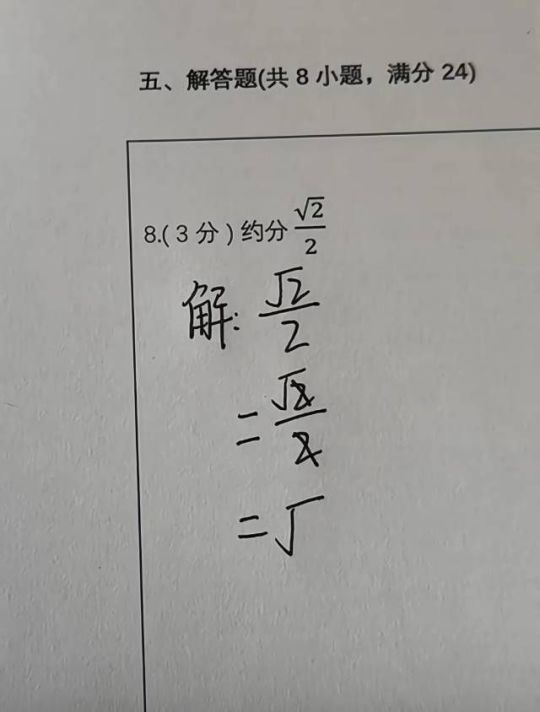 五、解答题(共 8 小题，满分 24)
8.( 3 分 ) 约分 √2/2
解: √2/2
= √2/2
= √